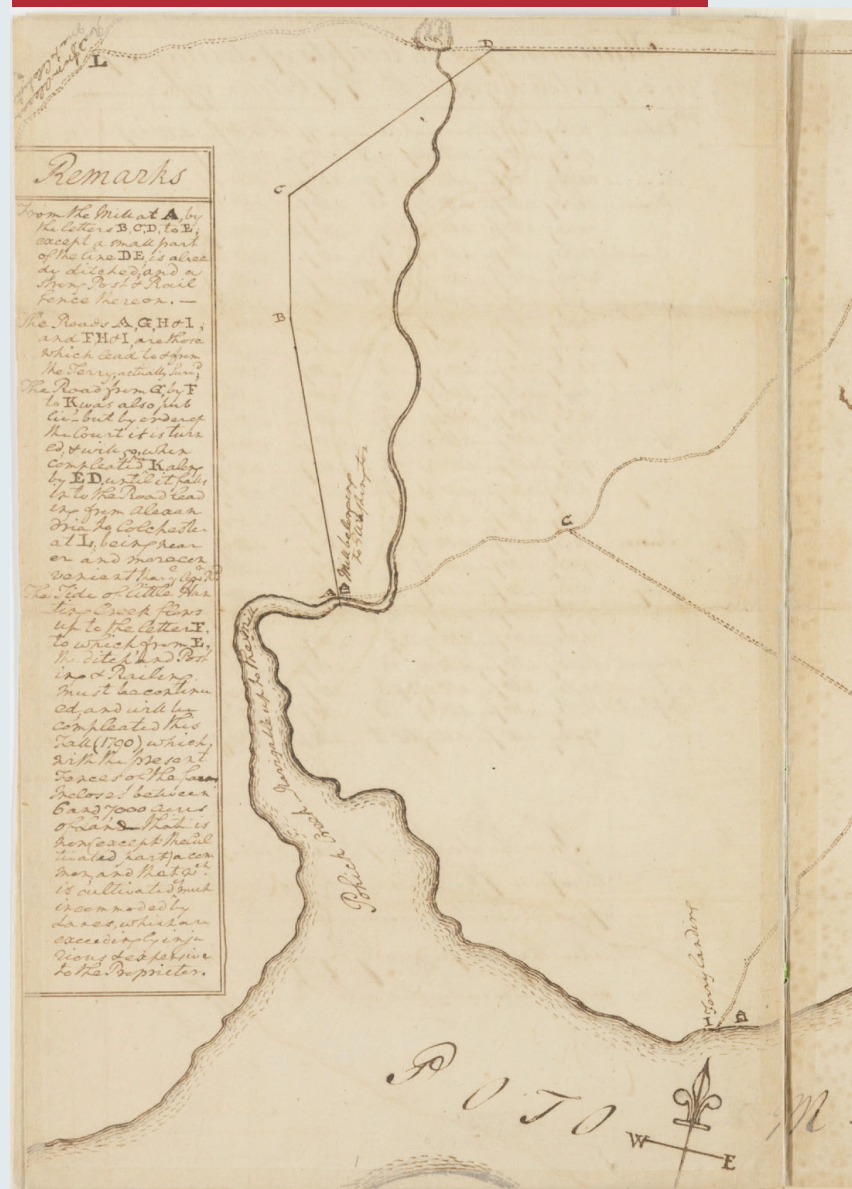 L
D
Remarks
From the Mill at A, by
the letters B, C, D, to E,
except a small part
of the line DE, is alrea
dy ditched, and a
strong Post & Rail
fence thereon. —
The Roads A, G, H & I,
and F H & I, are those
which lead to & from
the Ferry, actually Surv.d
The Road from G, by F
to K was also pub
lic - but by order of
the Court it is turn
ed, & will go, when
compleated K along
by E D, until it falls
into the Road lead
ing from Alexan
dria to Colchester
at L, being near
er and more con
venient than
The Tide of little Hun
ting Creek flows
up to the letter F,
to which from E,
the ditch and Post
ing & Railing
must be continu
ed, and will be
compleated this
Fall (1790) which,
with the present
Fences of the farms
Incloses between
6 and 7000 acres
of Land That is
now (except the cul
tivated part) a com
mon, and that w.ch
is cultivated much
incommoded by
Lanes, which are
exceedingly inju
rious & expensive
to the Proprietor.
C
B
Mill belonging
to G Washington
A
G
Pohick Creek - Navigable up to the Mill
Ferry landing
H
POTO M
W
E